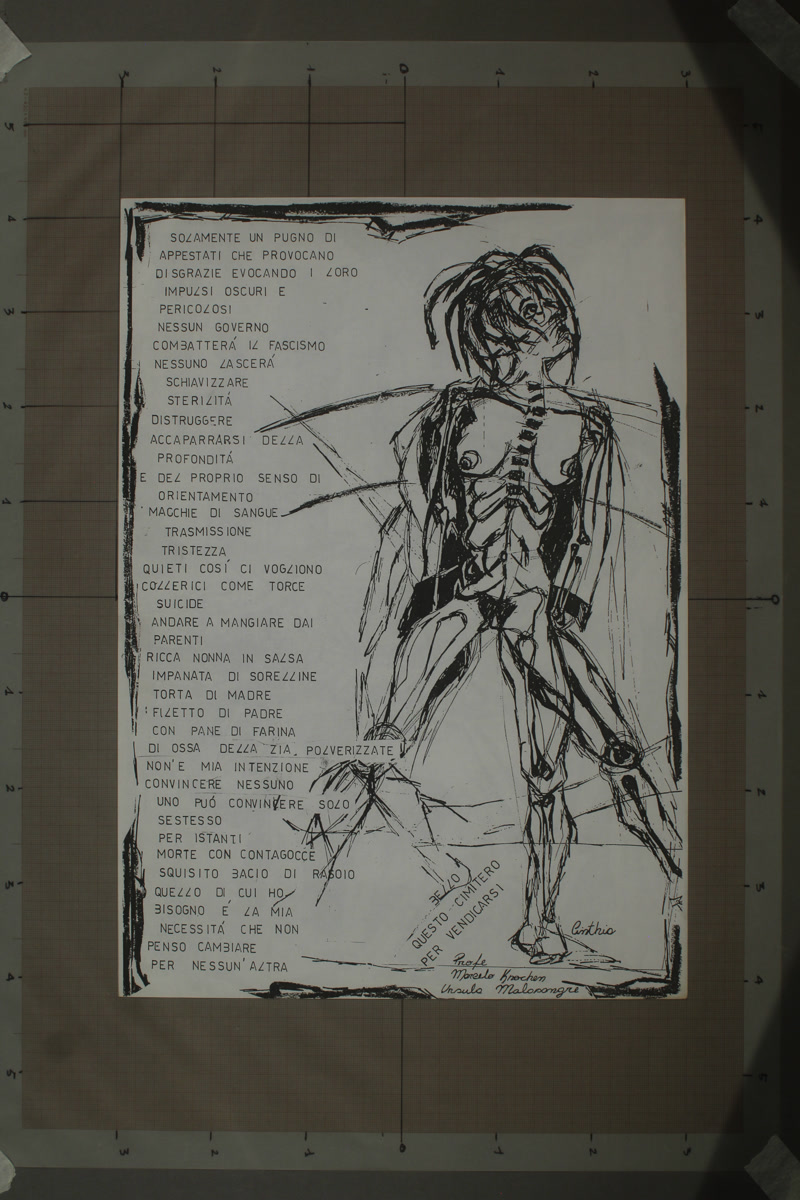 SOLAMENTE UN PUGNO DI
APPESTATI CHE PROVOCANO
DISGRAZIE EVOCANDO I LORO
IMPULSI OSCURI E
PERICOLOSI
NESSUN GOVERNO
COMBATTERÁ IL FASCISMO
NESSUNO LASCERÁ
SCHIAVIZZARE
STERILITÁ
DISTRUGGERE
ACCAPARRARSI DELLA
PROFONDITÁ
E DEL PROPRIO SENSO DI
ORIENTAMENTO
MACCHIE DI SANGUE
TRASMISSIONE
TRISTEZZA
QUIETI COSÍ CI VOGLIONO
COLLERICI COME TORCE
SUICIDE
ANDARE A MANGIARE DAI
PARENTI
RICCA NONNA IN SALSA
IMPANATA DI SORELLINE
TORTA DI MADRE
FILETTO DI PADRE
CON PANE DI FARINA
DI OSSA DELLA ZIA POLVERIZZATE
NON'E MIA INTENZIONE
CONVINCERE NESSUNO
UNO PUÓ CONVINCERE SOLO
SESTESSO
PER ISTANTI
MORTE CON CONTAGOCCE
SQUISITO BACIO DI RASOIO
QUELLO DI CUI HO
BISOGNO É LA MIA
NECESSITÁ CHE NON
PENSO CAMBIARE
PER NESSUN'ALTRA
BELLO
QUESTO CIMITERO
PER VENDICARSI
Cinthia
Marcelo
Ursula Malasangre
3 2 1 0 1 2 3
5
4 4
3 3
2 2
1 1
0 0
1 1
2 2
3 3
4 4
5 5
3 2 1 0 1 2 3